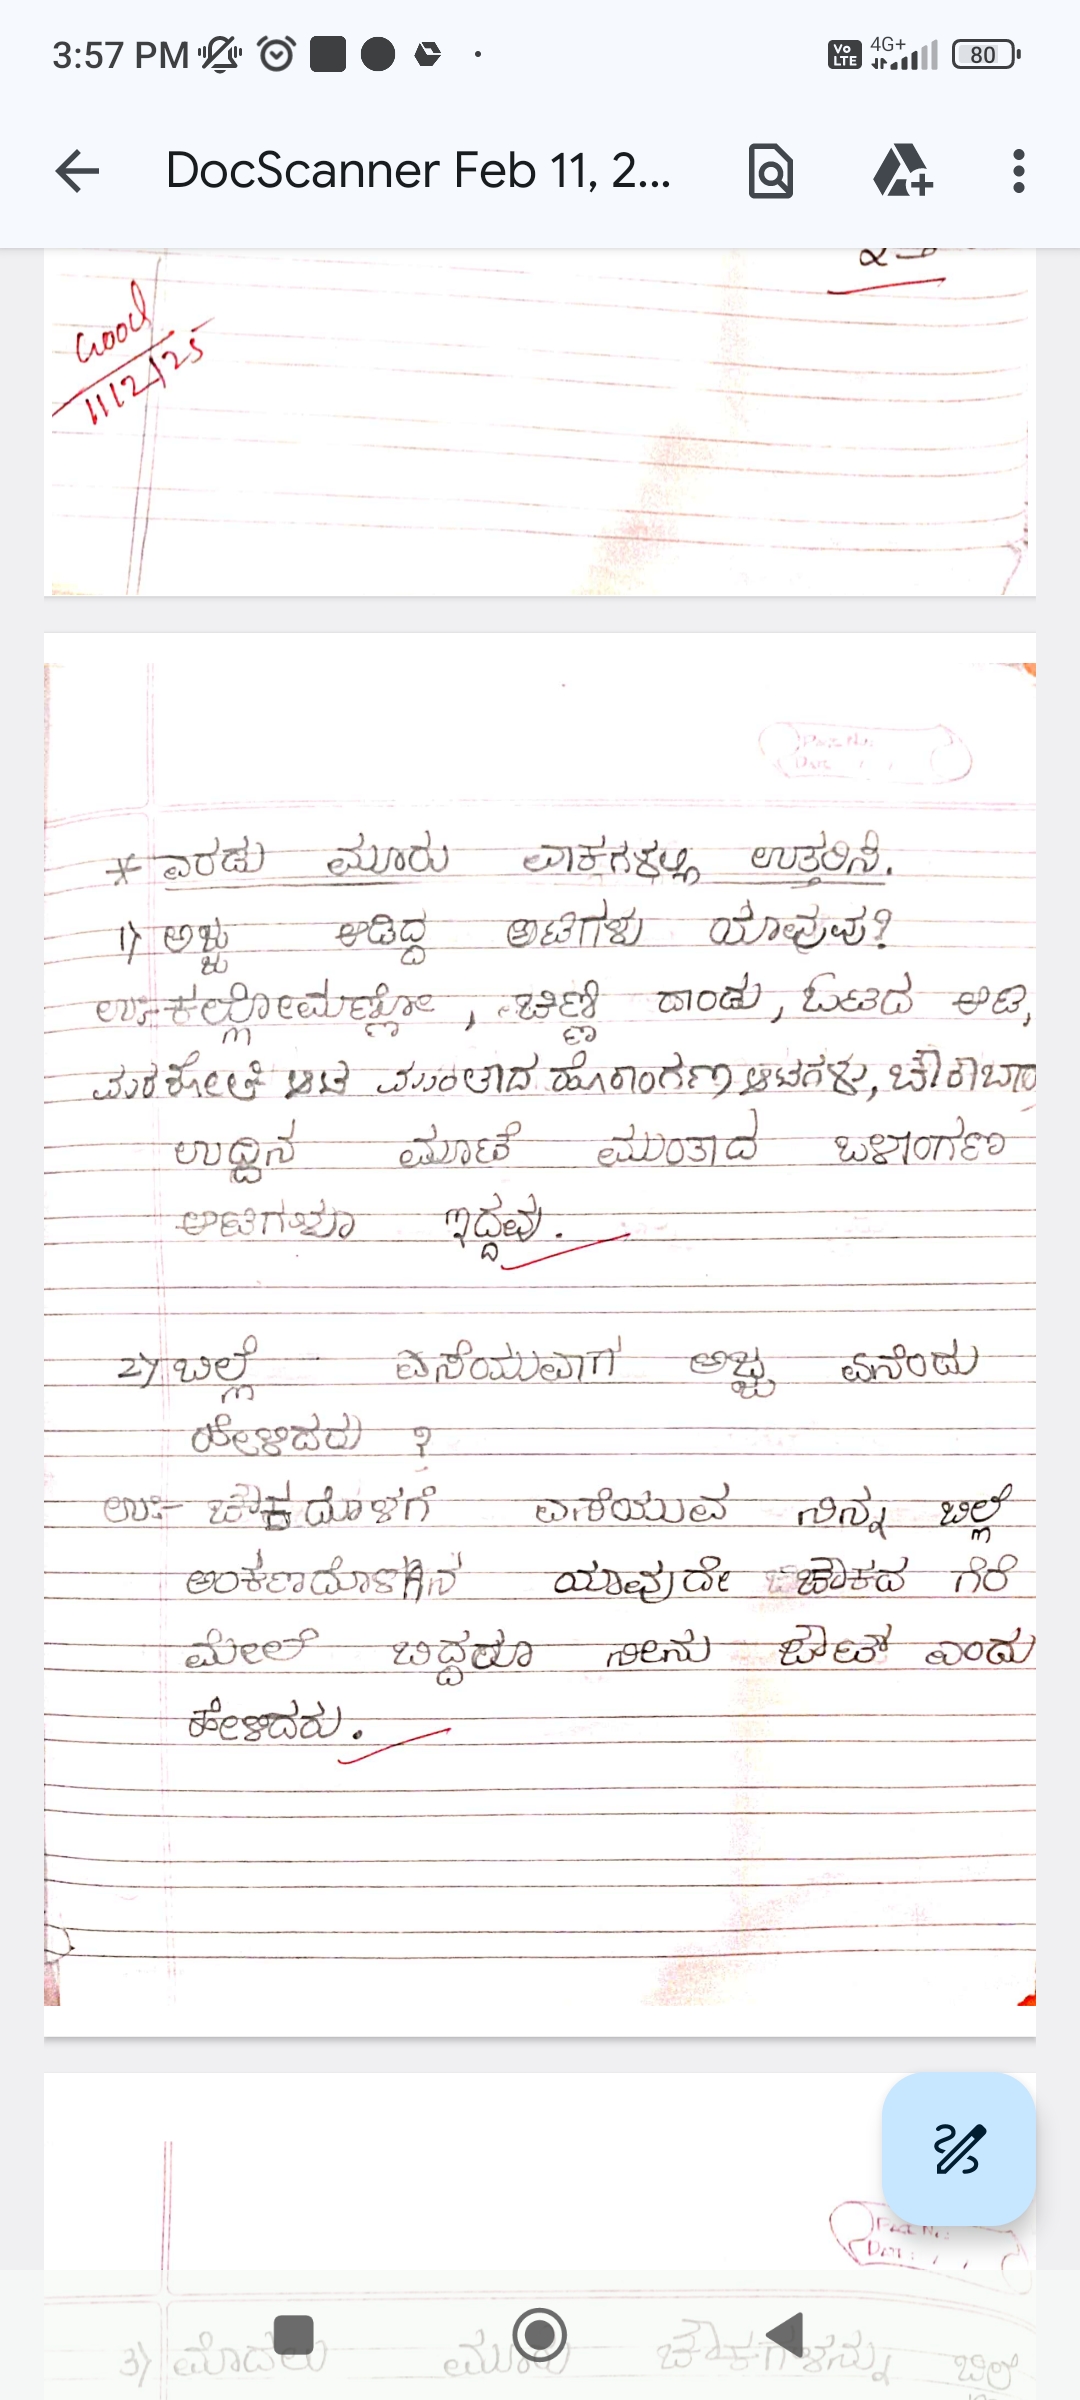 3:57 PM
Vo LTE 4G+ 80
DocScanner Feb 11, 2...
Good
11/2/25
Page No.
Date
* ಎರಡು ಮೂರು ವಾಕ್ಯಗಳಲ್ಲಿ ಉತ್ತರಿಸಿ.
1) ಅಜ್ಜಿ ಆಡಿದ್ದ ಆಟಗಳು ಯಾವುವು?
ಉ:- ಕಲ್ಲೋಮಣ್ಣೋ , ಚಿಣ್ಣಿ ದಾಂಡು, ಓಟದ ಆಟ,
ಮರಕೋತಿ ಆಟ ಮುಂತಾದ ಹೊರಾಂಗಣ ಆಟಗಳು, ಚೌಕಾಬಾರ
ಉದ್ದಿನ ಮೂಟೆ ಮುಂತಾದ ಒಳಾಂಗಣ
ಆಟಗಳೂ ಇದ್ದವು.
2) ಬಿಲ್ಲೆ ಎಸೆಯುವಾಗ ಅಜ್ಜಿ ಏನೆಂದು
ಹೇಳಿದರು ?
ಉ:- ಚೌಕದೊಳಗೆ ಎಸೆಯುವ ನಿನ್ನ ಬಿಲ್ಲೆ
ಅಂಕಣದೊಳಗಿನ ಯಾವುದೇ ಚೌಕದ ಗೆರೆ
ಮೇಲೆ ಬಿದ್ದರೂ ನೀನು ಔಟ್ ಎಂದು
ಹೇಳಿದರು.
Page No:
Date:
3) ಮೊದಲು ಮೂರು ಚೌಕಗಳನ್ನು